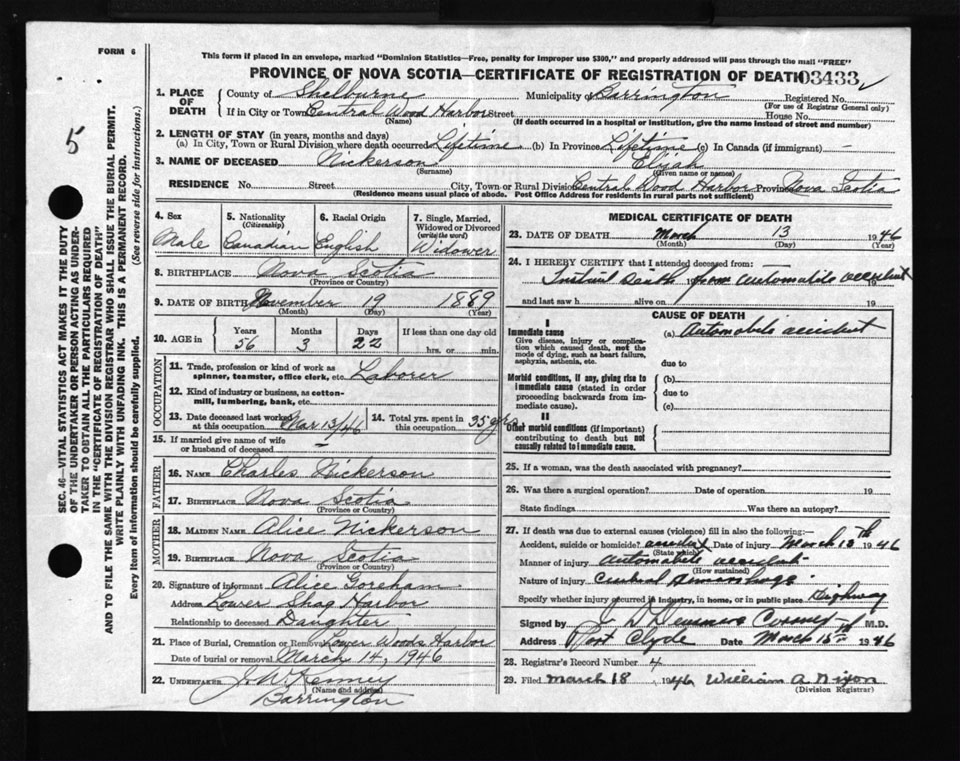 FORM 6
This form if placed in an envelope, marked "Dominion Statistics—Free, penalty for improper use $300," and properly addressed will pass through the mail "FREE"
PROVINCE OF NOVA SCOTIA—CERTIFICATE OF REGISTRATION OF DEATH 03433
1. PLACE OF DEATH County of Shelburne Municipality of Barrington Registered No.
(For use of Registrar General only)
If in City or Town Central Wood Harbor Street House No.
(Name) (If death occurred in a hospital or institution, give the name instead of street and number)
2. LENGTH OF STAY (in years, months and days)
(a) In City, Town or Rural Division where death occurred Lifetime (b) In Province Lifetime (c) In Canada (if immigrant) —
3. NAME OF DECEASED Nickerson Elijah
(Surname) (Given name or names)
RESIDENCE No. Street City, Town or Rural Division Central Wood Harbor Province Nova Scotia
(Residence means usual place of abode. Post Office Address for residents in rural parts not sufficient)
4. Sex Male
5. Nationality (Citizenship) Canadian
6. Racial Origin English
7. Single, Married, Widowed or Divorced (write the word) Widower
8. BIRTHPLACE Nova Scotia
(Province or Country)
9. DATE OF BIRTH November 19 1889
(Month) (Day) (Year)
10. AGE in Years 56 Months 3 Days 22 If less than one day old hrs. or min.
OCCUPATION
11. Trade, profession or kind of work as spinner, teamster, office clerk, etc. Laborer
12. Kind of industry or business, as cotton-mill, lumbering, bank, etc.
13. Date deceased last worked at this occupation Mar 13/46
14. Total yrs. spent in this occupation 35 yrs
15. If married give name of wife or husband of deceased —
FATHER
16. NAME Charles Nickerson
17. BIRTHPLACE Nova Scotia
(Province or Country)
MOTHER
18. MAIDEN NAME Alice Nickerson
19. BIRTHPLACE Nova Scotia
(Province or Country)
20. Signature of informant Alice Goreham
Address Lower Shag Harbor
Relationship to deceased Daughter
21. Place of Burial, Cremation or Removal Lower Woods Harbor
Date of burial or removal March 14, 1946
22. UNDERTAKER J. W. Kenney
(Name and address)
Barrington
MEDICAL CERTIFICATE OF DEATH
23. DATE OF DEATH March 13 1946
(Month) (Day) (Year)
24. I HEREBY CERTIFY that I attended deceased from:
death from automobile accident 19
and last saw h alive on 19
CAUSE OF DEATH
I
Immediate cause
Give disease, injury or complication which caused death, not the mode of dying, such as heart failure, asphyxia, asthenia, etc.
(a) Automobile accident
due to
Morbid conditions, if any, giving rise to immediate cause (stated in order proceeding backwards from immediate cause).
(b)
due to
(c)
II
Other morbid conditions (if important) contributing to death but not causally related to immediate cause.
25. If a woman, was the death associated with pregnancy?
26. Was there a surgical operation? Date of operation 19
State findings Was there an autopsy?
27. If death was due to external causes (violence) fill in also the following:
Accident, suicide or homicide? accident Date of injury March 13th 1946
(State which)
Manner of injury Automobile accident
(How sustained)
Nature of injury Hemorrhage
Specify whether injury occurred in industry, in home, or in public place Highway
Signed by M.D.
Address Port Clyde Date March 15th 1946
28. Registrar's Record Number 4
29. Filed March 18 1946 William A Nixon
(Division Registrar)
5
SEC. 46—VITAL STATISTICS ACT MAKES IT THE DUTY OF THE UNDERTAKER OR PERSON ACTING AS UNDERTAKER TO OBTAIN ALL THE PARTICULARS REQUIRED IN THE "CERTIFICATE OF REGISTRATION OF DEATH"
AND TO FILE THE SAME WITH THE DIVISION REGISTRAR WHO SHALL ISSUE THE BURIAL PERMIT.
WRITE PLAINLY WITH UNFADING INK. THIS IS A PERMANENT RECORD.
Every item of information should be carefully supplied. (See reverse side for instructions.)